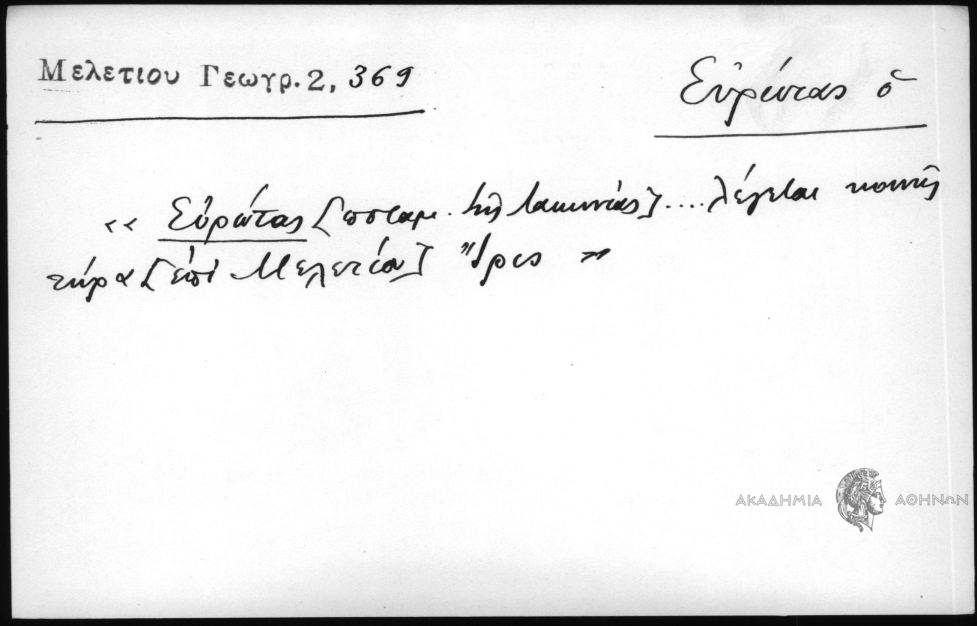 Μελετιου Γεωγρ. 2, 369
Εὐρώτας ὁ
« Εὐρώτας [ποταμ. τῆς Λακωνίας] .... λέγεται κοινῶς
τώρα [ἐπὶ Μελετίου] Ἴρις »
ΑΚΑΔΗΜΙΑ ΑΘΗΝΩΝ